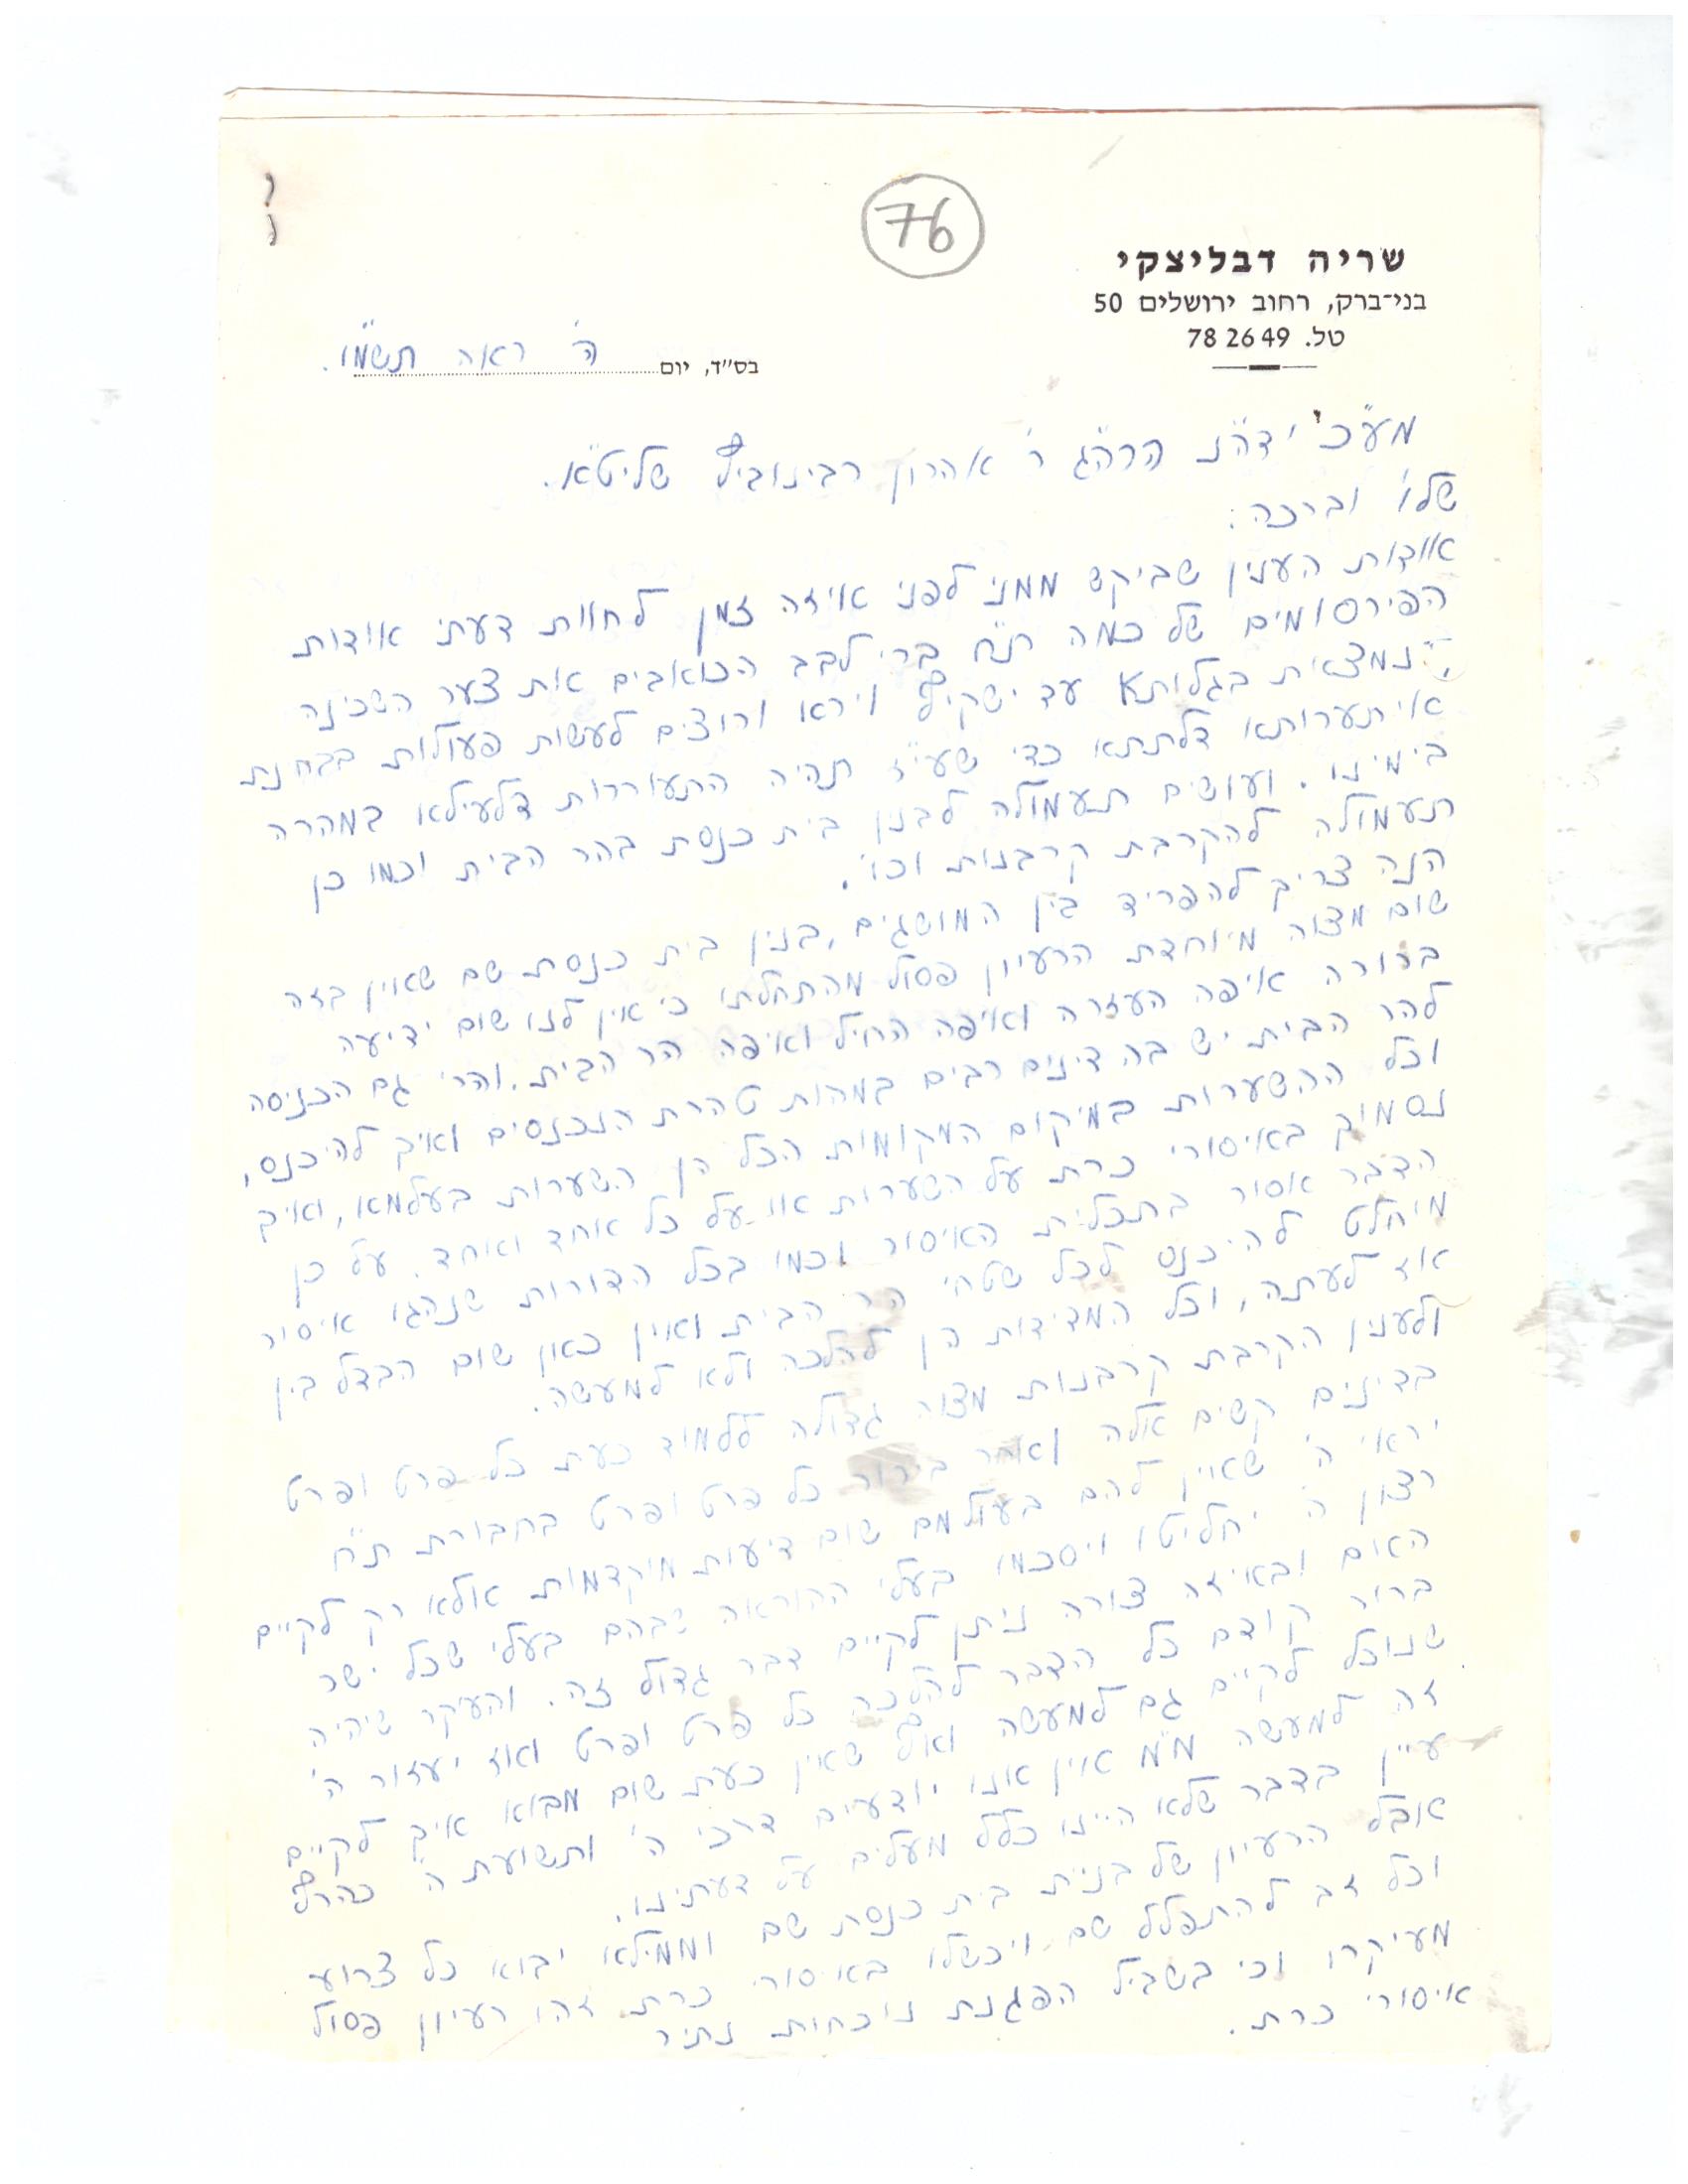 76
שריה דבליצקי
בני־ברק, רחוב ירושלים 50
טל. 782649
בס"ד, יום ה' ראה תשמ"ו.
מע"כ ידה"נ הרה"ג ר' אהרון רבינוביץ שליט"א.
שלו' וברכה:
אודות הענין שביקש ממני לפני איזה זמן לחוות דעתי אודות
הפירסומים של כמה ת"ח ברי לבב הכואבים את צער השכינה
הנמצאת בגלותא עד ישקיף וירא ורוצים לעשות פעולות בבחנת
אויתערותא דלתתא כדי שעי"ז תהיה התעוררות דלעילא במהרה
בימינו. ועושים תעמולה לבנין בית כנסת בהר הבית וכמו כן
תעמולה להקרבת קרבנות וכו'.
הנה צריך להפריד בין המושגים, בנין בית כנסת שם שאין בזה
שום מצוה מיוחדת הרעיון פסול מהתחלתו כי אין לנו שום ידיעה
ברורה איפה העזרה ואיפה החיל ואיפה הר הבית. והרי גם הכניסה
להר הבית יש בה דינים רבים במהות טהרת הנכנסים ואיך להיכנס,
וכל ההשערות במיקום המקומות הכל הן השערות בעלמא, ואיך
נסמוך באיסורי כרת על השערות או על כל אחד ואחד. על כן
הדבר אסור בתכלית האיסור וכמו בכל הדורות שנהגו איסור
מוחלט להיכנס לכל שטחי הר הבית ואין כאן שום הבדל בין
אז לעתה, וכל המדידות הן להלכה ולא למעשה.
ולענין הקרבת קרבנות מצוה גדולה ללמוד כעת כל פרט ופרט
בדינים קשים אלה ואחר בירור כל פרט ופרט בחבורת ת"ח
יראי ה' שאין להם בעולמם שום דיעות מוקדמות אלא רק לקיים
רצון ה' יחליטו ויסכמו בעלי ההוראה שבהם בעלי שכל ישר
האם ובאיזה צורה ניתן לקיים דבר גדול זה. והעיקר שיהיה
ברור קודם כל הדבר להלכה כל פרט ופרט ואז יעזור ה'
שנוכל לקיים גם למעשה ואף שאין כעת שום מבוא איך לקיים
זה למעשה מ"מ אין אנו יודעים דרכי ה' ותשועת ה' כהרף
עיין בדבר שלא היינו כלל מעלים על דעתינו.
אבל הרעיון של בניית בית כנסת שם וממילא יבוא כל צרוע
וכל זב להתפלל שם ויכשלו באיסורי כרת זהו רעיון פסול
מעיקרו וכי בשביל הפגנת נוכחות נתיר
איסורי כרת.